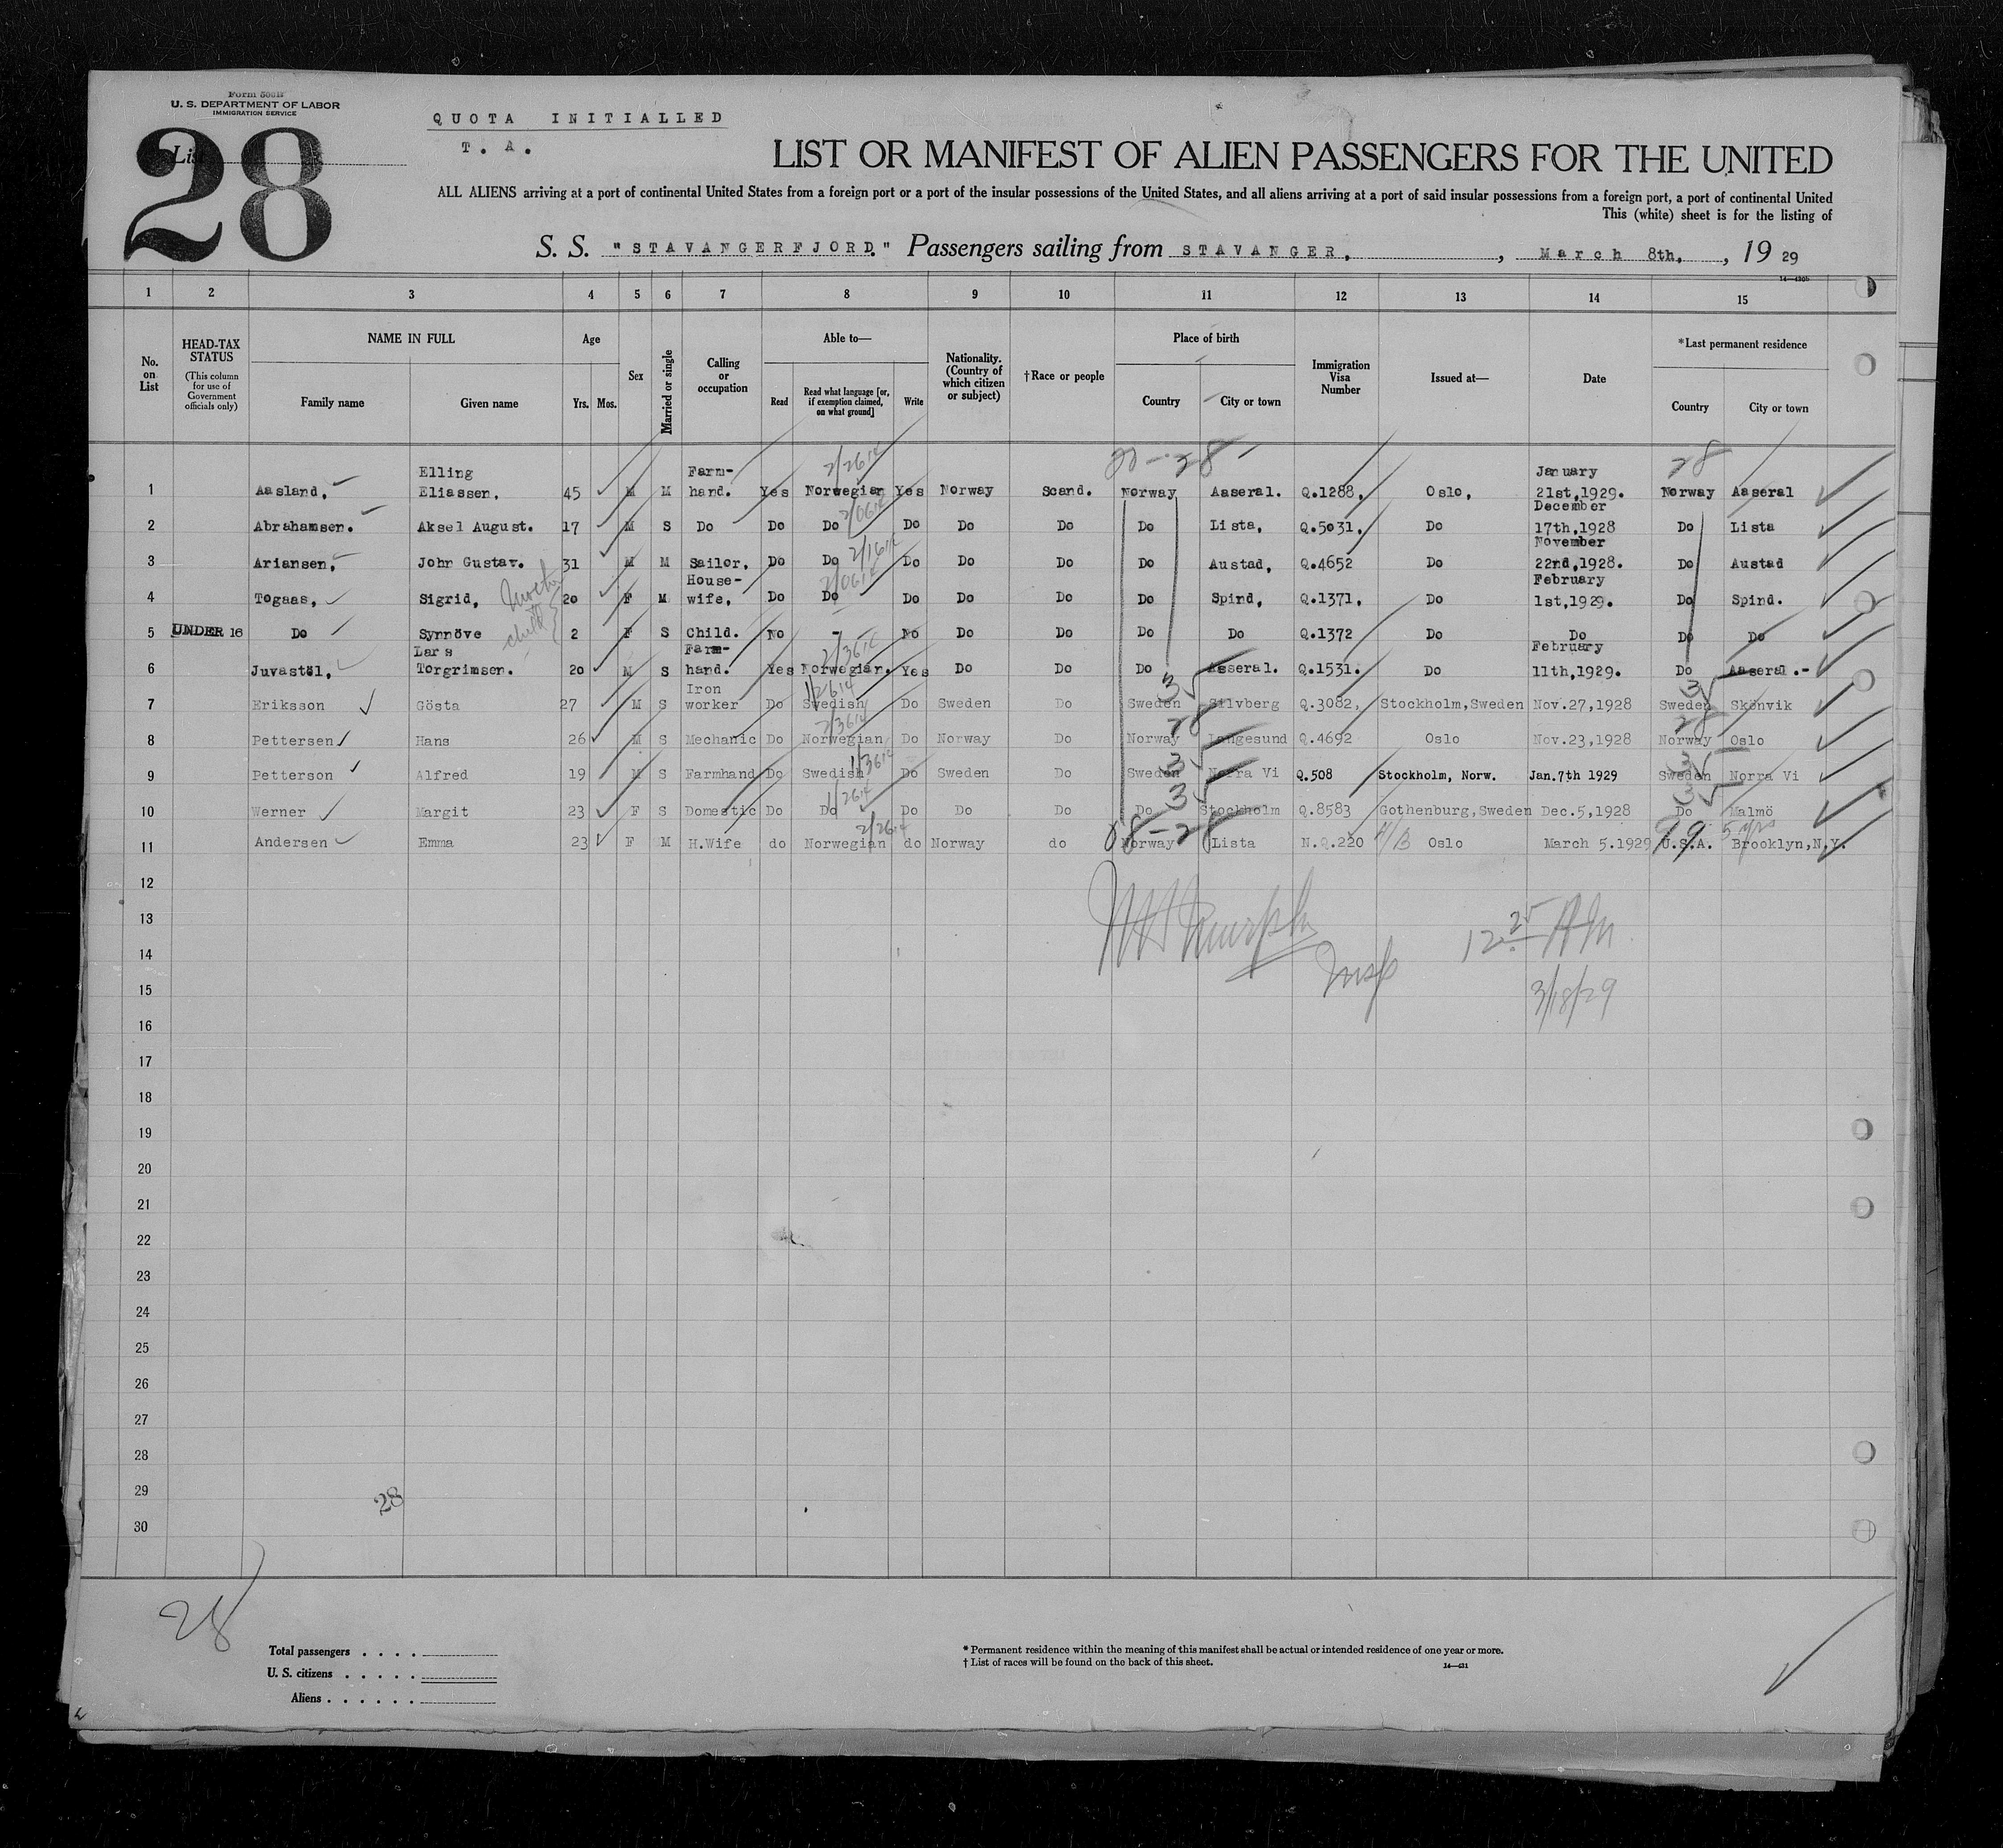 Form 500B
U. S. DEPARTMENT OF LABOR
IMMIGRATION SERVICE
List
28
QUOTA INITIALLED
T. A.
LIST OR MANIFEST OF ALIEN PASSENGERS FOR THE UNITED
ALL ALIENS arriving at a port of continental United States from a foreign port or a port of the insular possessions of the United States, and all aliens arriving at a port of said insular possessions from a foreign port, a port of continental United
This (white) sheet is for the listing of
S. S. "STAVANGERFJORD." Passengers sailing from STAVANGER, , March 8th, , 19 29
1 2 3 4 5 6 7 8 9 10 11 12 13 14 15
No. on List
HEAD-TAX STATUS
(This column for use of Government officials only)
NAME IN FULL
Family name Given name
Age
Yrs. Mos.
Sex
Married or single
Calling or occupation
Able to—
Read Read what language [or, if exemption claimed, on what ground] Write
Nationality. (Country of which citizen or subject)
†Race or people
Place of birth
Country City or town
Immigration Visa Number
Issued at—
Date
*Last permanent residence
Country City or town
28
1 Aasland, Elling Eliassen. 45 M M Farm-hand. Yes Norwegian Yes Norway Scand. Norway Aaseral. Q.1288, Oslo, January 21st,1929. Norway Aaseral
2 Abrahamsen. Aksel August. 17 M S Do Do Do Do Do Do Do Lista, Q.5031. Do December 17th,1928 Do Lista
3 Ariansen, John Gustav. 31 M M Sailor, Do Do Do Do Do Do Austad, Q.4652 Do November 22nd,1928. Do Austad
4 Togaas, Sigrid, 20 F M House-wife, Do Do Do Do Do Do Spind, Q.1371, Do February 1st,1929. Do Spind.
5 UNDER 16 Do Synnöve child 2 F S Child. No - No Do Do Do Do Q.1372 Do Do Do Do
6 Juvastöl, Lars Torgrimsen. 20 M S Farm-hand. Yes Norwegian. Yes Do Do Do Aaseral. Q.1531. Do February 11th,1929. Do Aaseral.-
7 Eriksson Gösta 27 M S Iron worker Do Swedish Do Sweden Do Sweden Silvberg Q.3082, Stockholm,Sweden Nov.27,1928 Sweden Skönvik
8 Pettersen Hans 26 M S Mechanic Do Norwegian Do Norway Do Norway Langesund Q.4692 Oslo Nov.23,1928 Norway Oslo
9 Petterson Alfred 19 M S Farmhand Do Swedish Do Sweden Do Sweden Norra Vi Q.508 Stockholm, Norw. Jan.7th 1929 Sweden Norra Vi
10 Werner Margit 23 F S Domestic Do Do Do Do Do Do Stockholm Q.8583 Gothenburg,Sweden Dec.5,1928 Do Malmö
11 Andersen Emma 23 F M H.Wife do Norwegian do Norway do Norway Lista N.Q.220 4/B Oslo March 5.1929 U.S.A. Brooklyn,N.Y.
99 5 yrs
12
13
14
15
16
17
18
19
20
21
22
23
24
25
26
27
28
29
30
Murphy
Insp
12.25 AM
3/18/29
28
28
Total passengers . . . .
U. S. citizens . . . . .
Aliens . . . . . .
* Permanent residence within the meaning of this manifest shall be actual or intended residence of one year or more.
† List of races will be found on the back of this sheet.